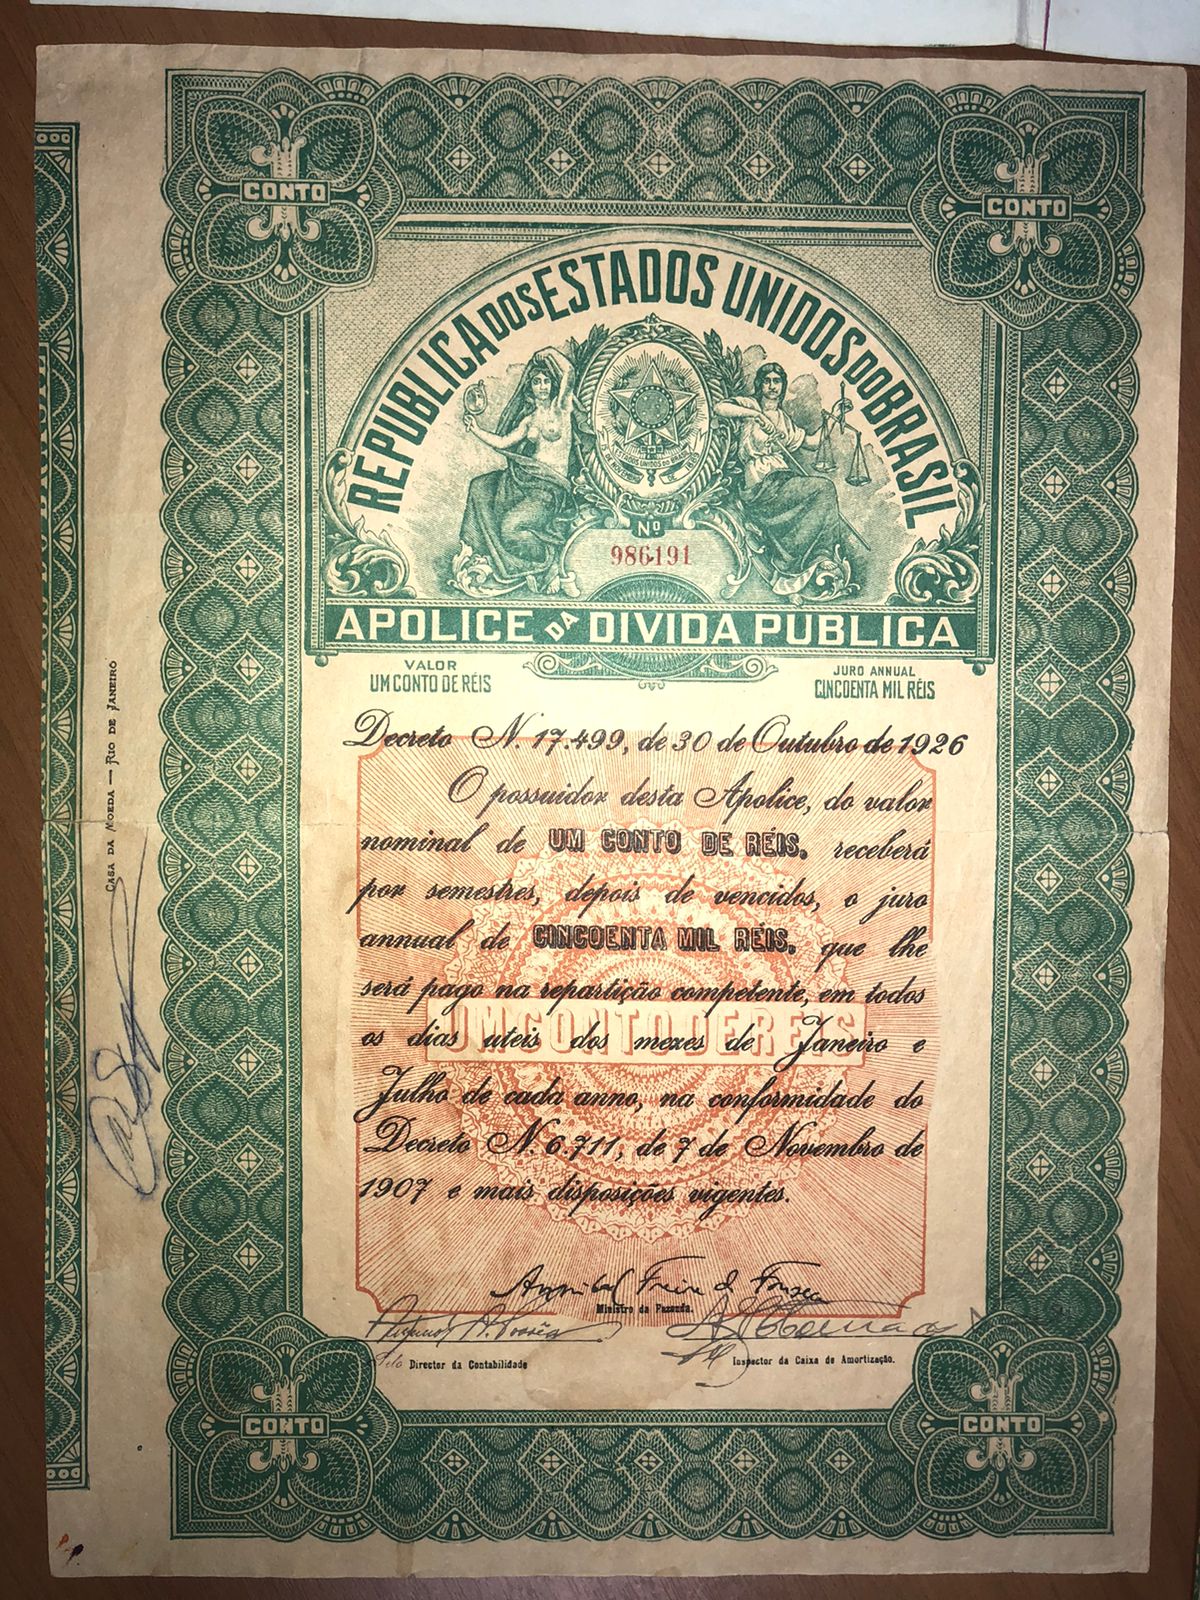 CONTO
CONTO
REPUBLICA DOS ESTADOS UNIDOS DO BRASIL
Nº
986191
APOLICE DA DIVIDA PUBLICA
VALOR
UM CONTO DE RÉIS
JURO ANNUAL
CINCOENTA MIL RÉIS
Decreto N. 17.499, de 30 de Outubro de 1926
O possuidor desta Apolice, do valor
nominal de UM CONTO DE RÉIS. receberá
por semestres, depois de vencidos, o juro
annual de CINCOENTA MIL RÉIS. que lhe
será pago na repartição competente, em todos
os dias uteis dos mezes de Janeiro e
UM CONTO DE RÉIS
Julho de cada anno, na conformidade do
Decreto N. 6.711, de 7 de Novembro de
1907 e mais disposições vigentes.
Annibal Freire da Fonseca
Ministro da Fazenda.
Pelo Director da Contabilidade
Inspector da Caixa de Amortização.
CONTO
CONTO
CASA DA MOEDA — RIO DE JANEIRO